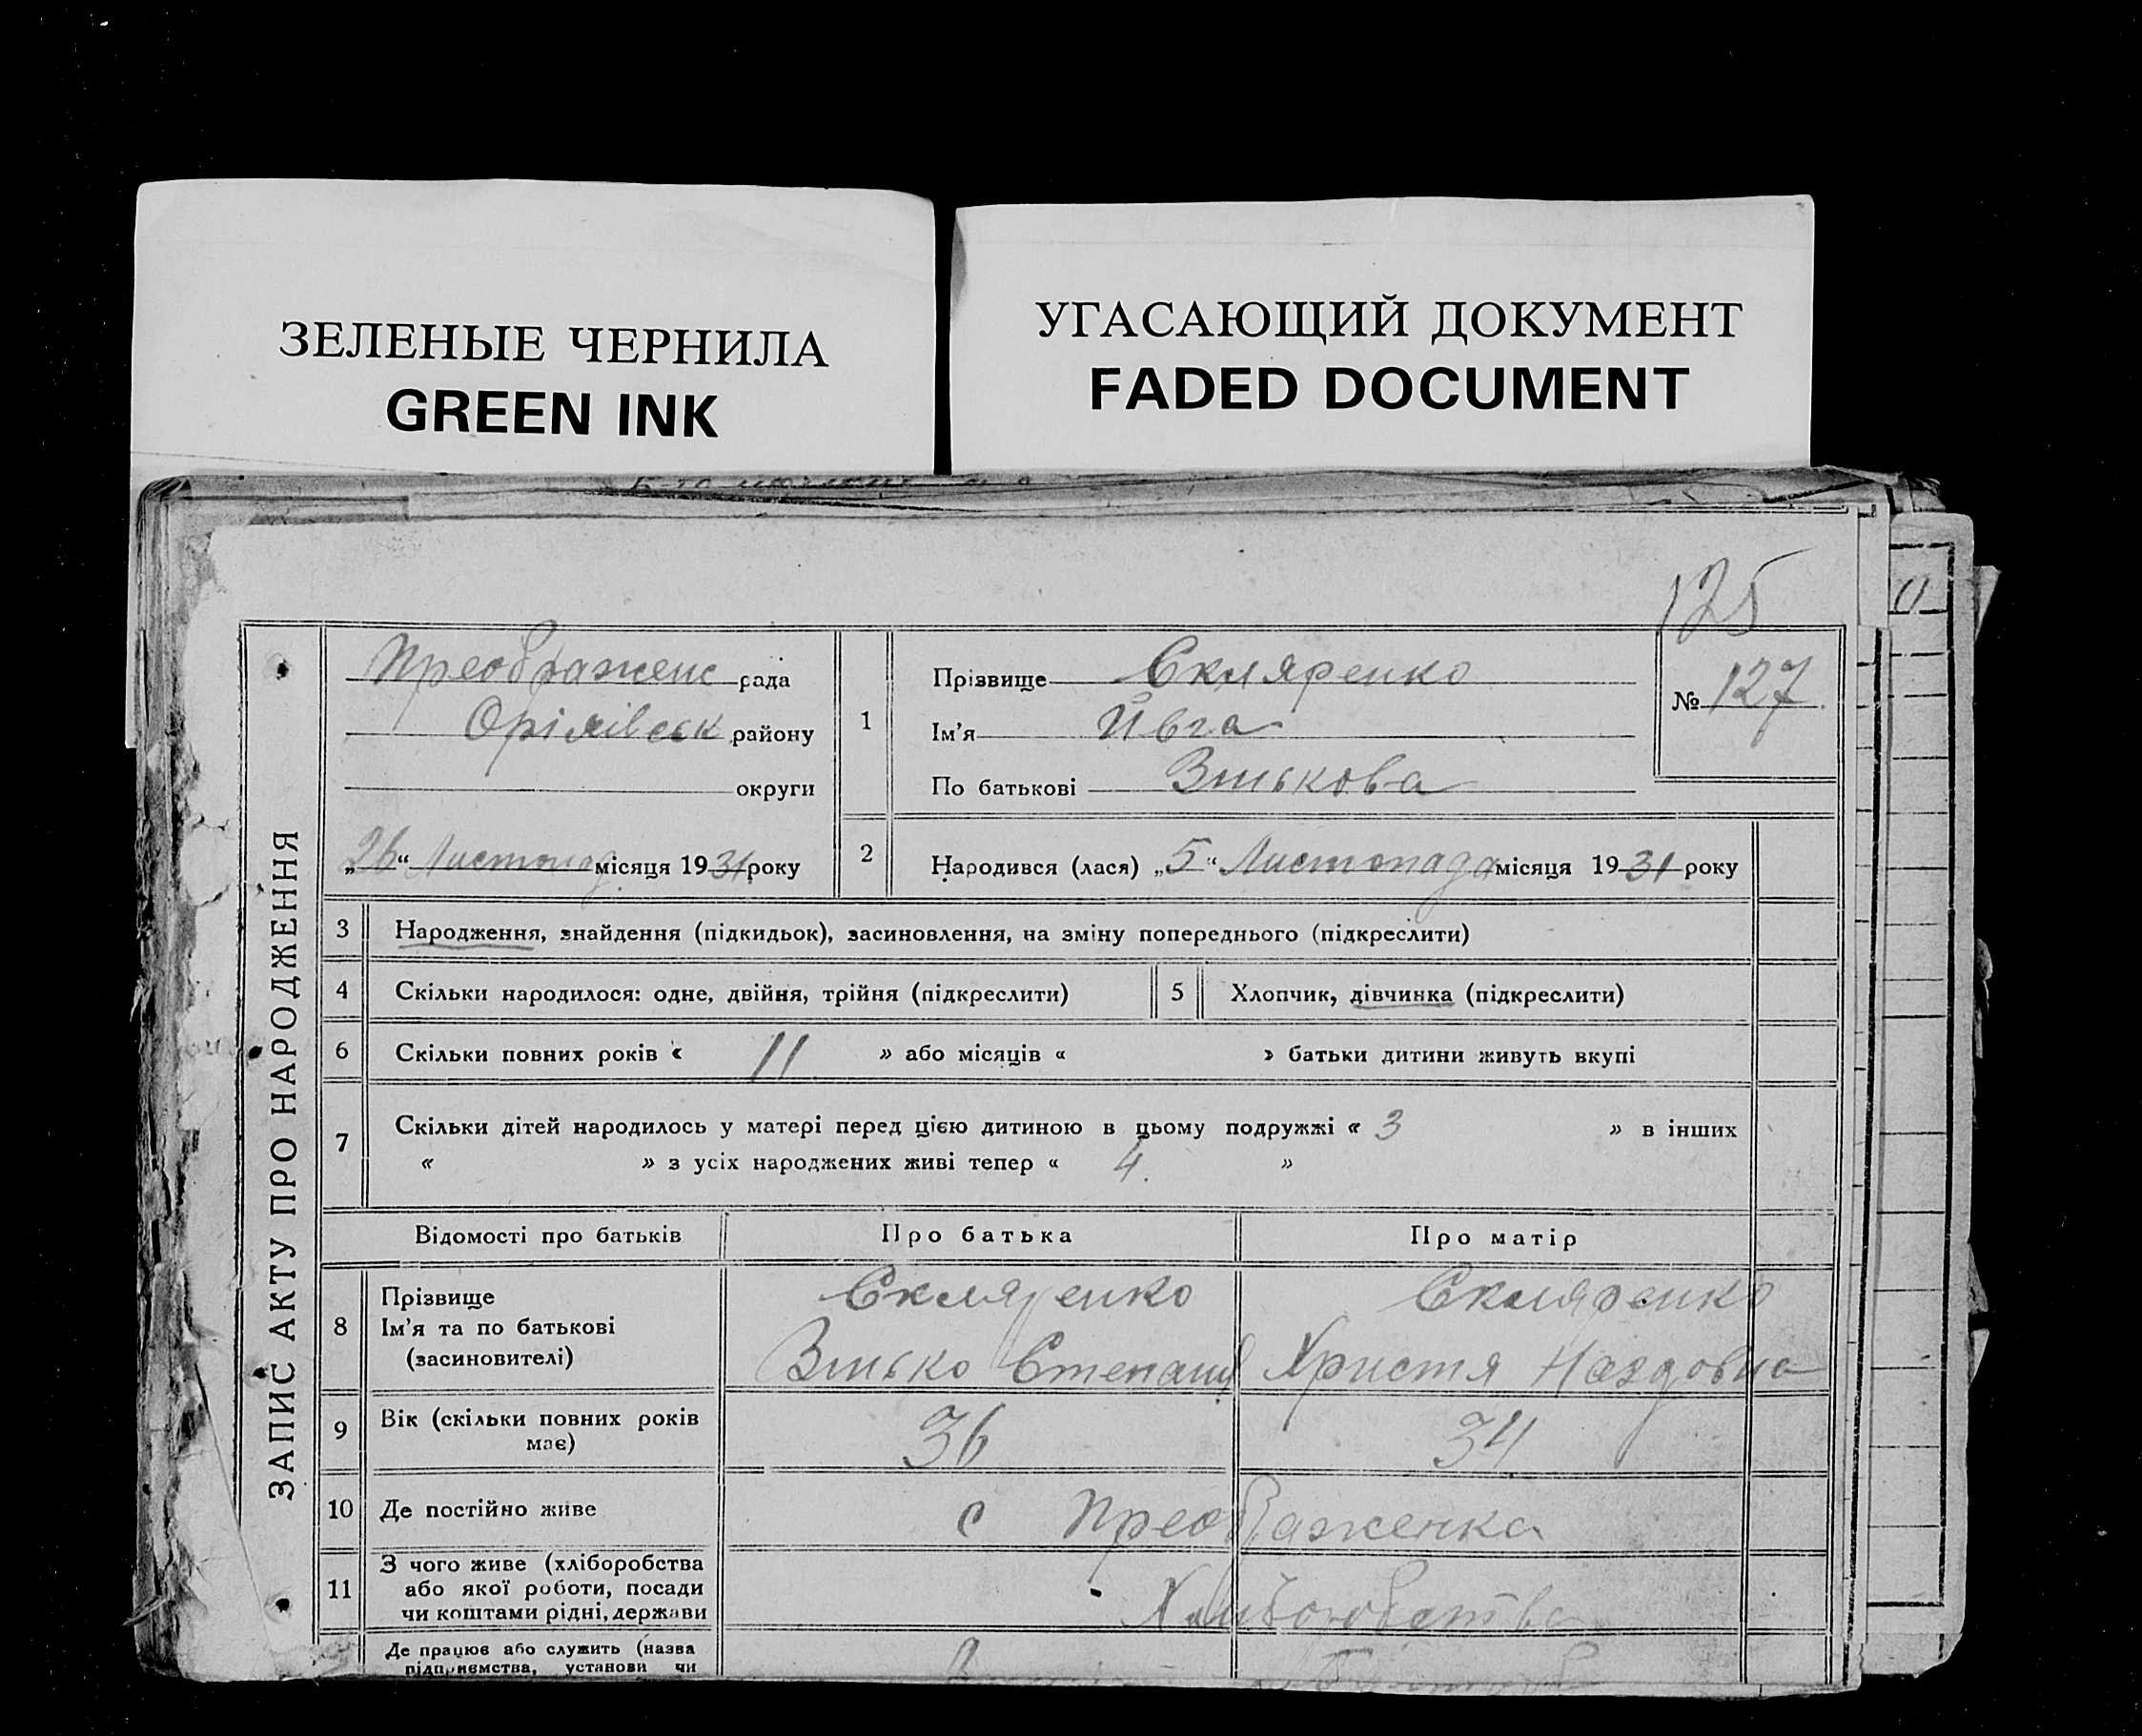 ЗЕЛЕНЫЕ ЧЕРНИЛА
GREEN INK
УГАСАЮЩИЙ ДОКУМЕНТ
FADED DOCUMENT
125
ЗАПИС АКТУ ПРО НАРОДЖЕННЯ
Преображенс рада
Орілівськ району
округи
„26“ Листопад місяця 1931 року
1
Прізвище Скляренко
Ім'я Ивга
По батькові Зінькова
№ 127
2
Народився (лася) „5“ Листопада місяця 1931 року
3 Народження, знайдення (підкидьок), засиновлення, на зміну попереднього (підкреслити)
4 Скільки народилося: одне, двійня, трійня (підкреслити) 5 Хлопчик, дівчинка (підкреслити)
6 Скільки повних років « 11 » або місяців « » батьки дитини живуть вкупі
7 Скільки дітей народилось у матері перед цією дитиною в цьому подружжі « 3 » в інших
« » з усіх народжених живі тепер « 4. »
Відомості про батьків Про батька Про матір
8 Прізвище
Ім'я та по батькові
(засиновителі)
Скляренко Скляренко
Зінько Степани Христя
9 Вік (скільки повних років
має)
36 34
10 Де постійно живе с Преображенка
11 З чого живе (хліборобства
або якої роботи, посади
чи коштами рідні, держави
Хліборобства
Де працює або служить (назва
підприємства, установи чи